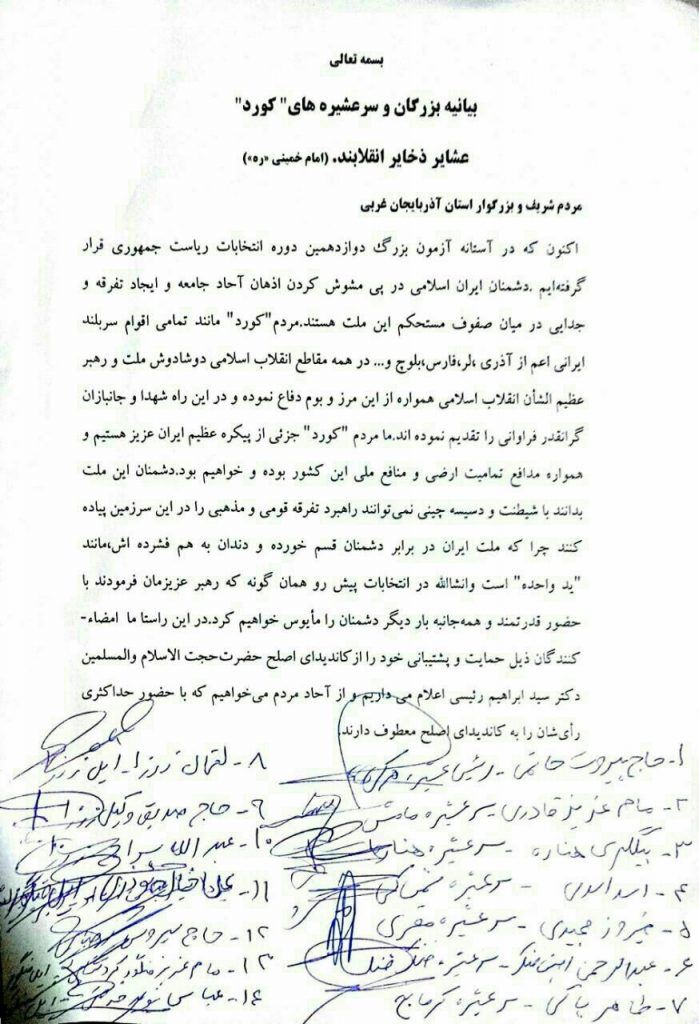 بسمه تعالی
بیانیه بزرگان و سرعشیره های" کورد"
عشایر ذخایر انقلابند. (امام خمینی «ره»)
مردم شریف و بزرگوار استان آذربایجان غربی
اکنون که در آستانه آزمون بزرگ دوازدهمین دوره انتخابات ریاست جمهوری قرار
گرفته‌ایم .دشمنان ایران اسلامی در پی مشوش کردن اذهان آحاد جامعه و ایجاد تفرقه و
جدایی در میان صفوف مستحکم این ملت هستند.مردم"کورد" مانند تمامی اقوام سربلند
ایرانی اعم از آذری ،لر،فارس،بلوچ و... در همه مقاطع انقلاب اسلامی دوشادوش ملت و رهبر
عظیم الشأن انقلاب اسلامی همواره از این مرز و بوم دفاع نموده و در این راه شهدا و جانبازان
گرانقدر فراوانی را تقدیم نموده اند.ما مردم "کورد" جزئی از پیکره عظیم ایران عزیز هستیم و
همواره مدافع تمامیت ارضی و منافع ملی این کشور بوده و خواهیم بود.دشمنان این ملت
بدانند با شیطنت و دسیسه چینی نمی‌توانند راهبرد تفرقه قومی و مذهبی را در این سرزمین پیاده
کنند چرا که ملت ایران در برابر دشمنان قسم خورده و دندان به هم فشرده اش،مانند
"ید واحده" است وانشاالله در انتخابات پیش رو همان گونه که رهبر عزیزمان فرمودند با
حضور قدرتمند و همه‌جانبه بار دیگر دشمنان را مأیوس خواهیم کرد.در این راستا ما امضاء-
کنندگان ذیل حمایت و پشتیبانی خود را از کاندیدای اصلح حضرت‌حجت الاسلام والمسلمین
دکتر سید ابراهیم رئیسی اعلام می داریم و از آحاد مردم می‌خواهیم که با حضور حداکثری
رأی‌شان را به کاندیدای اصلح معطوف دارند.
۱- حاج بیروت حاتمی - رئیس عشیره
۲- مام عزیز قادری - سرعشیره مامش
۳- بیگلری هناره - سرعشیره هناره
۴- اسد اسدی - سرعشیره
۵- فیروز مجیدی - سرعشیره مقری
۶- عبدالرحمن - سرعشیره
۷- طاهر پاکی - سرعشیره کرماج
۸- لقمان زرزا - ایل زرزا
۹- حاج صدیق وکیل زرزا
۱۰- عبدالله
۱۱-
۱۲- حاج سیروس
۱۳- مام عزیز
۱۴- عباس